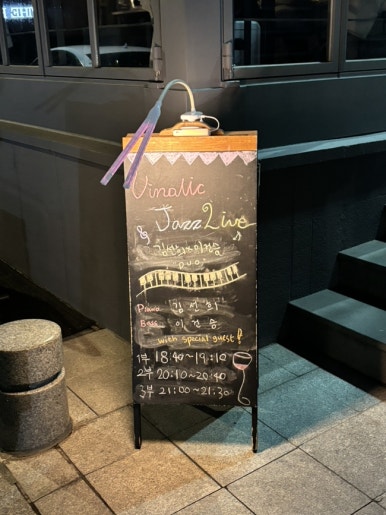 Vinallc
& Jazz Live
DUO
Piano 김선호
Bass 이정승
with special guest!
1부 18:40~19:10
2부 20:10~20:40
3부 21:00~21:30